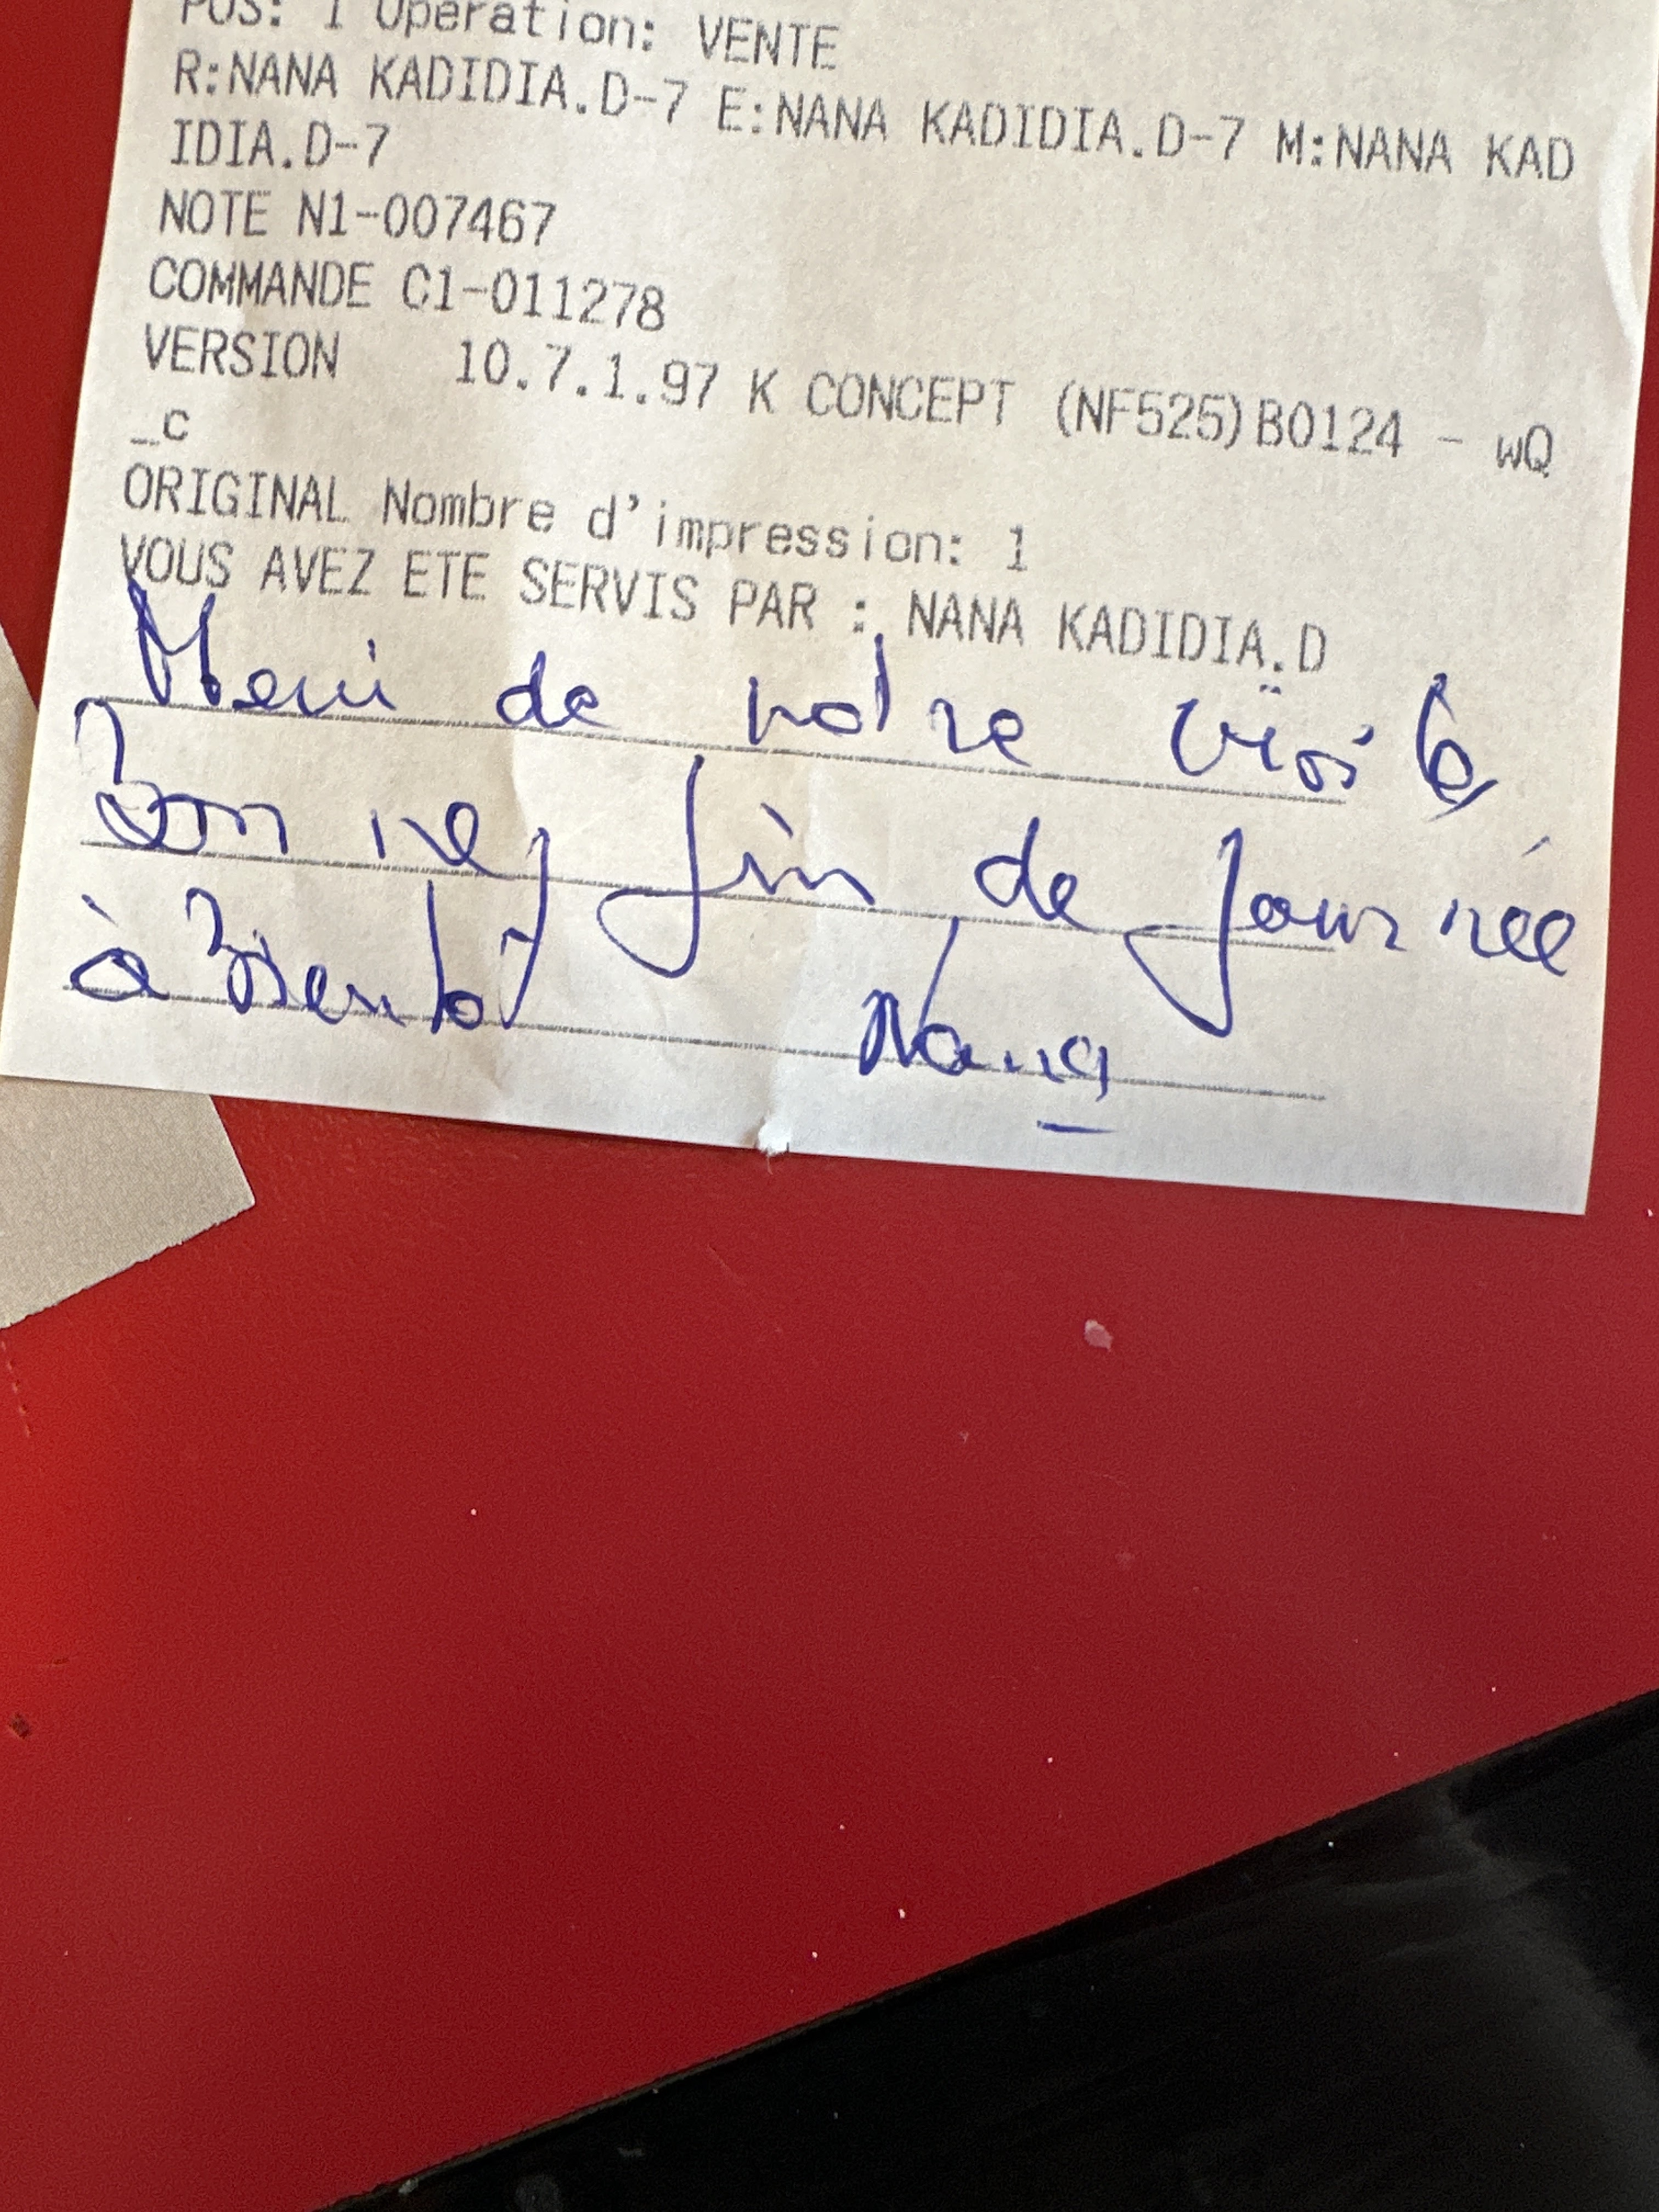 POS: 1 Operation: VENTE
R:NANA KADIDIA.D-7 E:NANA KADIDIA.D-7 M:NANA KAD
IDIA.D-7
NOTE N1-007467
COMMANDE C1-011278
VERSION 10.7.1.97 K CONCEPT (NF525)B0124 - wQ
_c
ORIGINAL Nombre d'impression: 1
VOUS AVEZ ETE SERVIS PAR : NANA KADIDIA.D
Merci de votre visite,
Bonne fin de journée
à Bientôt Nana